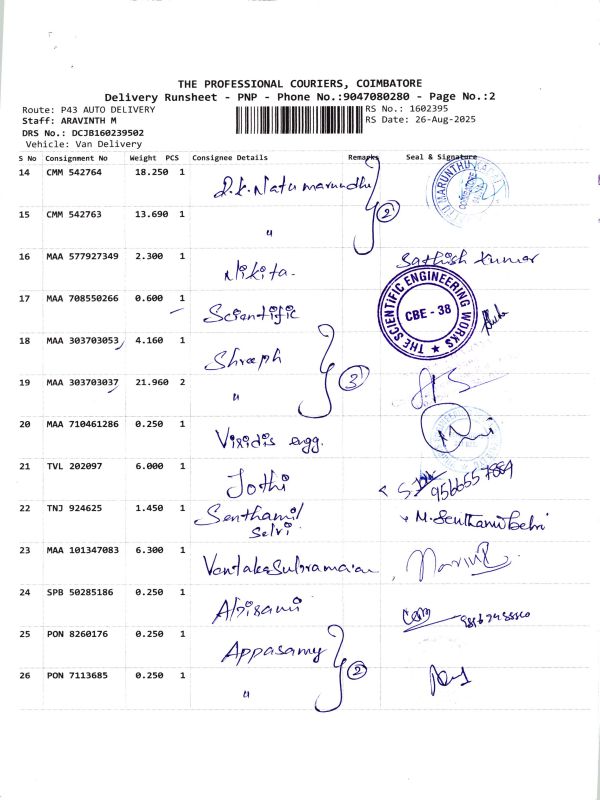 THE PROFESSIONAL COURIERS, COIMBATORE
Delivery Runsheet - PNP - Phone No.:9047080280 - Page No.:2
Route: P43 AUTO DELIVERY RS No.: 1602395
Staff: ARAVINTH M RS Date: 26-Aug-2025
DRS No.: DCJB160239502
Vehicle: Van Delivery
S No Consignment No Weight PCS Consignee Details Remarks Seal & Signature
14 CMM 542764 18.250 1
15 CMM 542763 13.690 1 " 2
16 MAA 577927349 2.300 1 Nikita. Sathish Kumar
17 MAA 708550266 0.600 1 Scientific THE SCIENTIFIC ENGINEERING WORKS ★ CBE - 38
18 MAA 303703053 4.160 1 Shreeph
19 MAA 303703037 21.960 2 " 3
20 MAA 710461286 0.250 1 Viridis engg.
21 TVL 202097 6.000 1 Jothi 9566557884
22 TNJ 924625 1.450 1 Senthamil Selvi
23 MAA 101347083 6.300 1
24 SPB 50285186 0.250 1
25 PON 8260176 0.250 1 Appasamy
26 PON 7113685 0.250 1 " 2